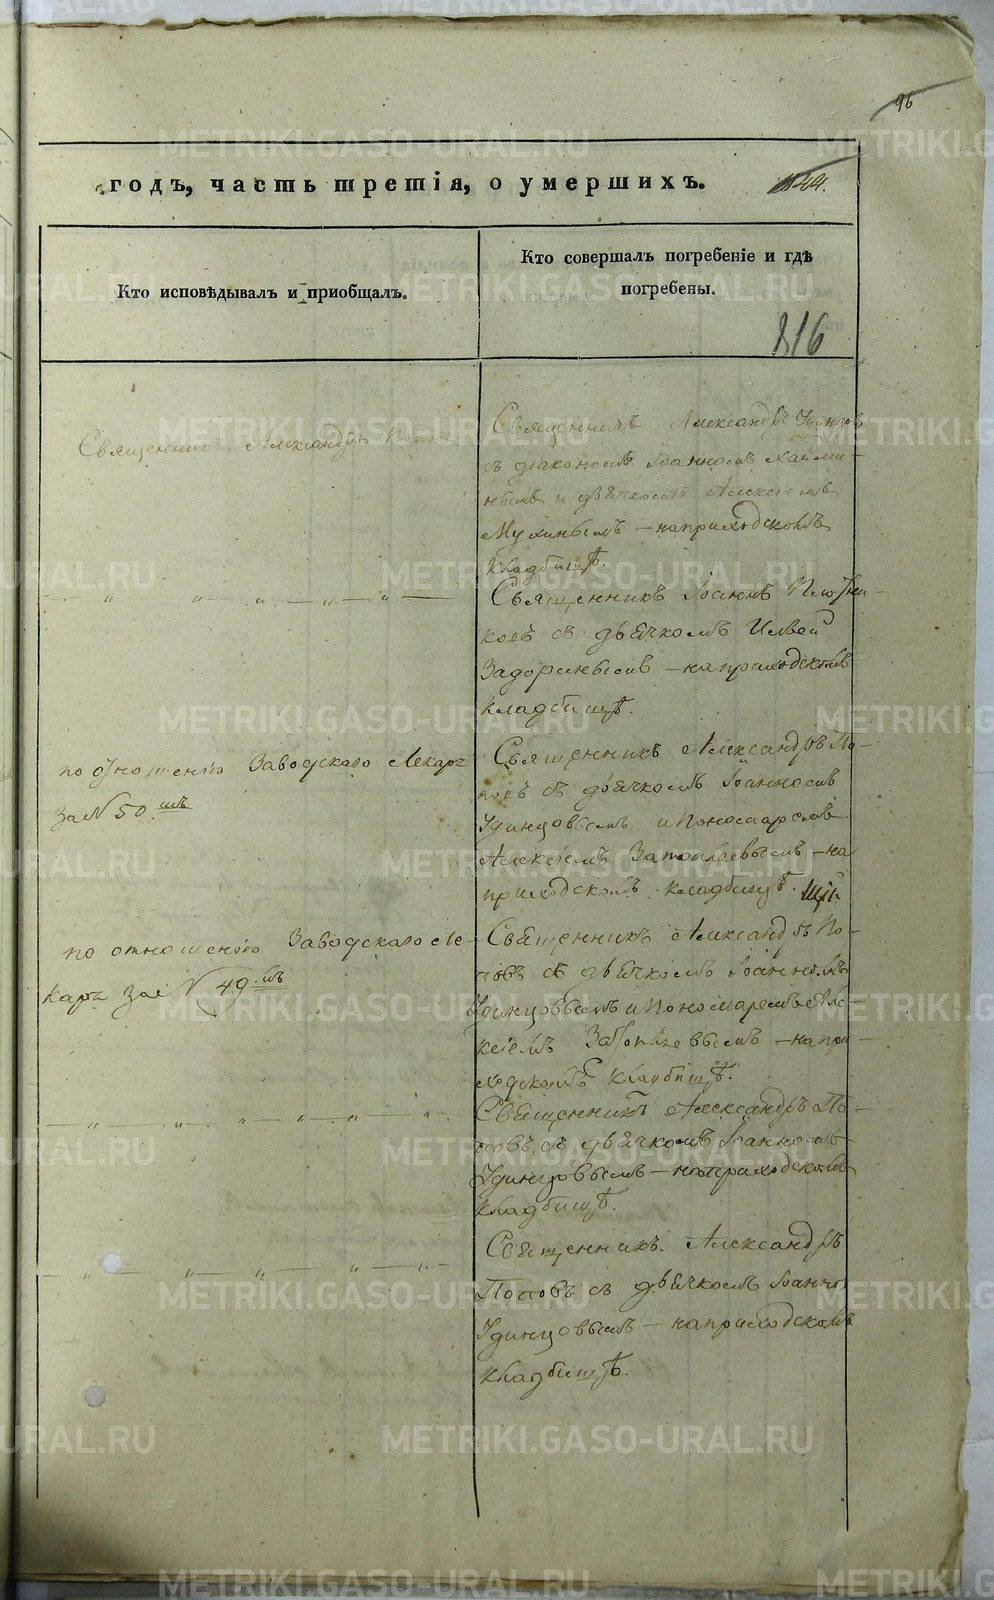 96
годъ, часть третія, о умершихъ.
44.
Кто исповѣдывалъ и приобщалъ.
Кто совершалъ погребеніе и гдѣ
погребены.
816
Священникъ Александръ Поповъ
Священникъ Александръ
съ діакономъ Іоанномъ
нымъ и дьячкомъ Алексіемъ
Мухинымъ — на приходскомъ
кладбищѣ.
— „ — „ — „ — „ — „ —
Священникъ Іоаннъ Плотни-
ковъ съ дьячкомъ
Задоринымъ — на приходскомъ
кладбищѣ.
по отношенію Заводскаго Лекаря
за № 50.мъ
Священникъ Александръ По-
повъ съ дьячкомъ Іоанномъ
Удинцовымъ и пономаремъ
Алексіемъ — на
приходскомъ кладбищѣ.
по отношенію Заводскаго Ле-
каря за № 49.мъ
Священникъ Александръ По-
повъ съ дьячкомъ Іоанномъ
Удинцовымъ и пономаремъ Але-
ксіемъ — на при-
ходскомъ кладбищѣ.
— „ — „ — „ — „ — „ —
Священникъ Александръ По-
повъ съ дьячкомъ Іоанномъ
Удинцовымъ — на приходскомъ
кладбищѣ.
— „ — „ — „ — „ — „ —
Священникъ Александръ
Поповъ съ дьячкомъ Іоанно
Удинцовымъ — на приходскомъ
кладбищѣ.
METRIKI.GASO-URAL.RU